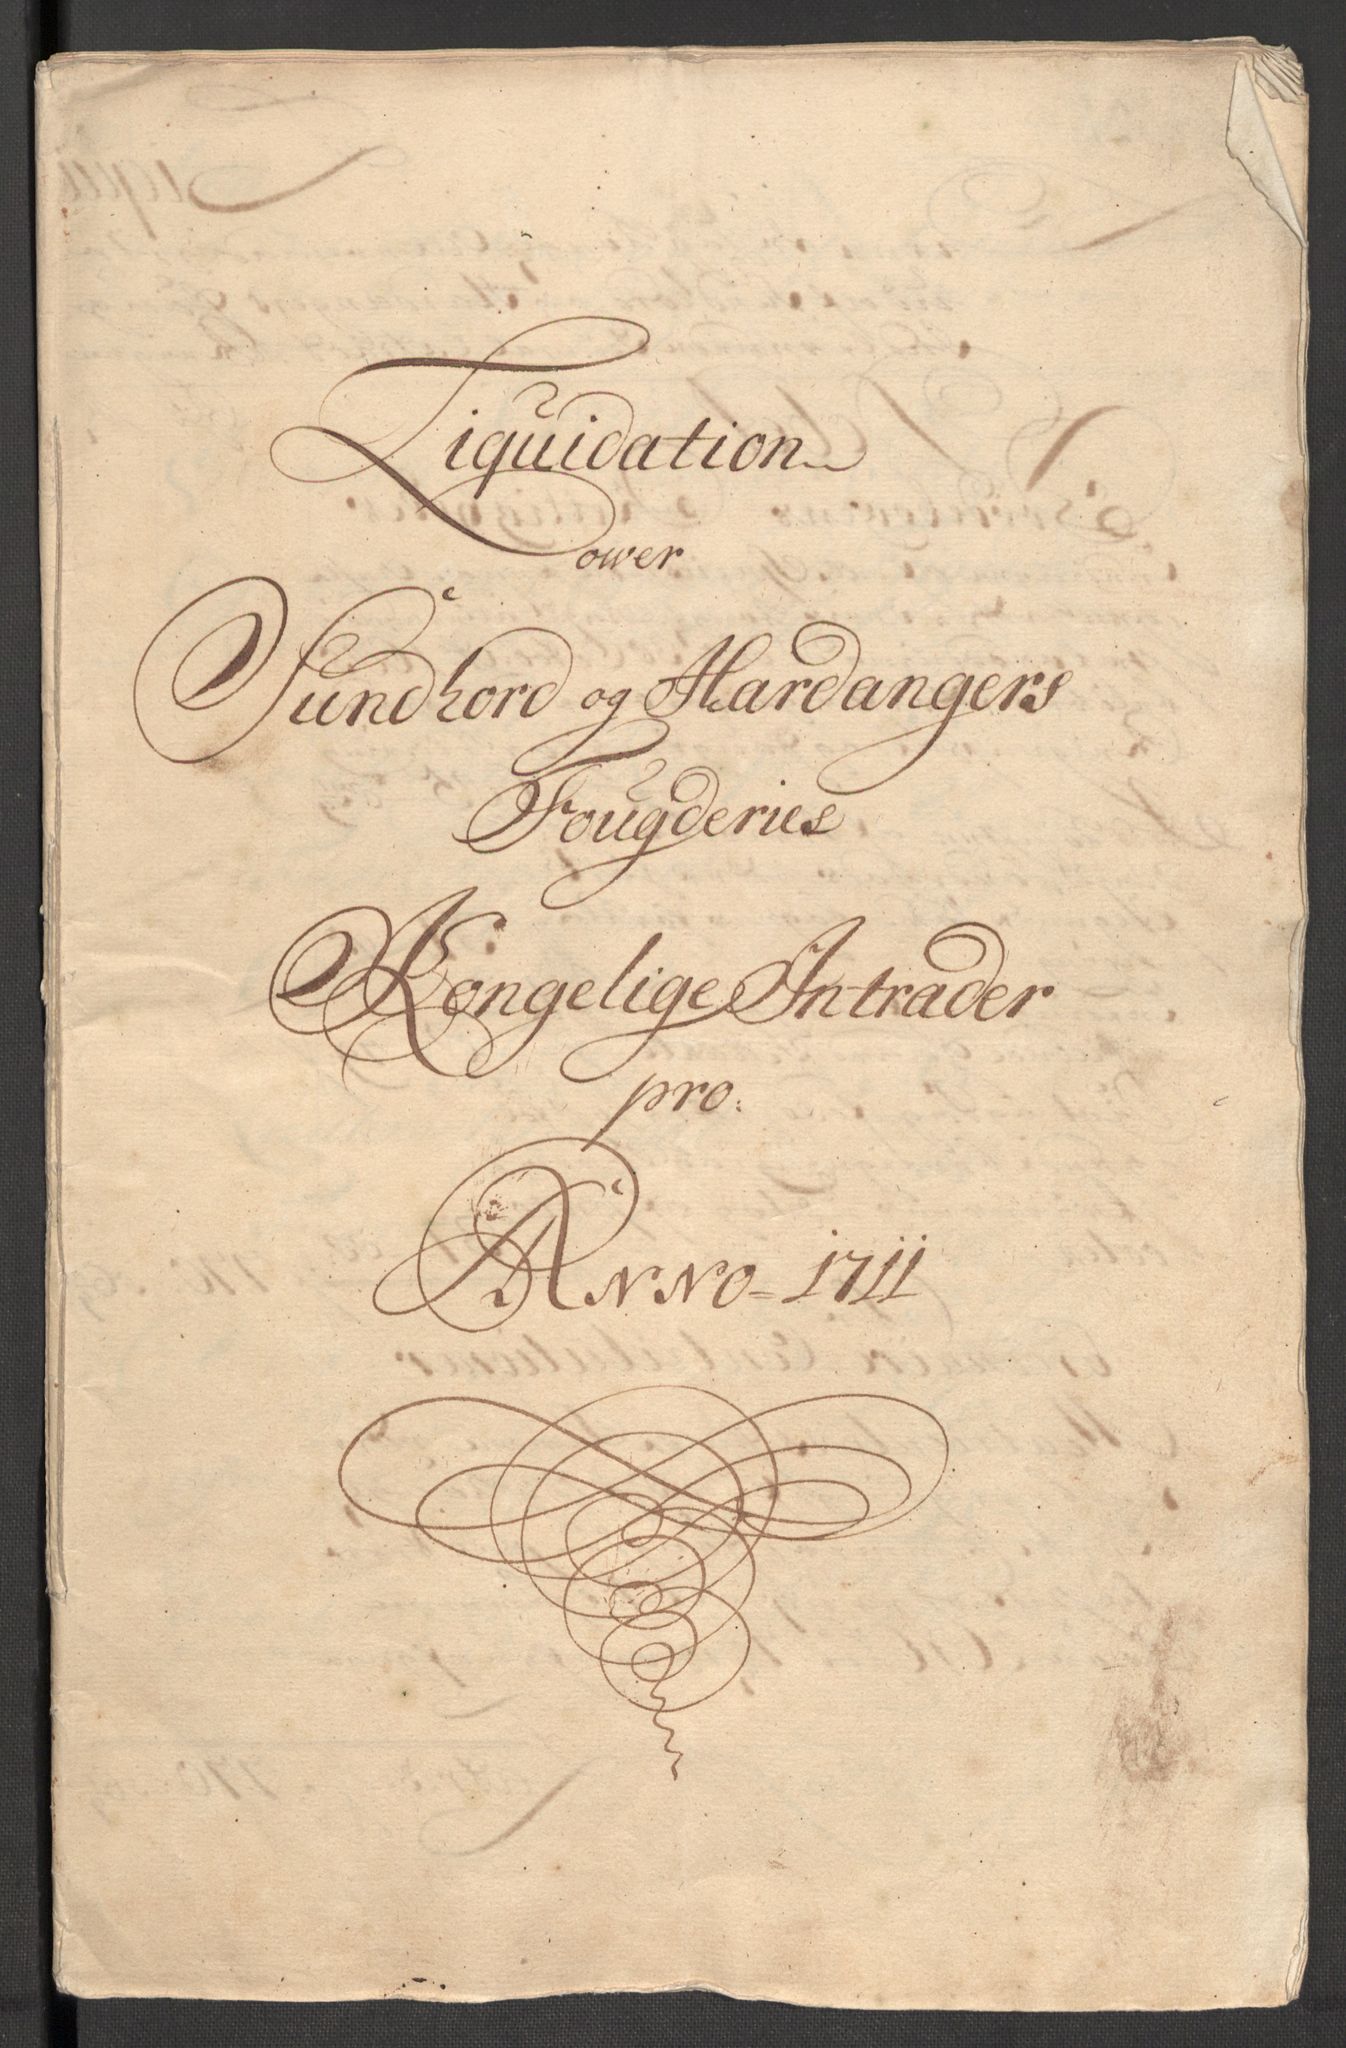 Liquidation
ower
Sundhord og Hardangers
Fougderies
Kongelige Intrader
pro:
Anno = 1711